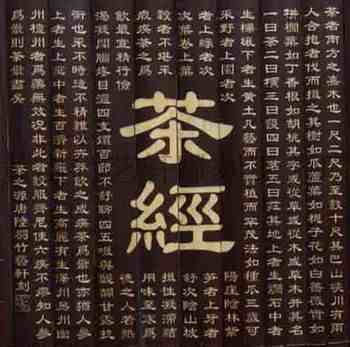 茶者南方之嘉木也一尺二尺乃至數十尺其巴山峽川有兩
人合抱者伐而掇之其樹如瓜蘆葉如梔子花如白薔薇實如
栟櫚葉如丁香根如胡桃其字或從草或從木或草木並其名
一曰茶二曰檟三曰蔎四曰茗五曰荈其地上者生爛石中者
生櫟壤下者生黃土凡藝而不實植而罕茂法如種瓜三歲可
采野者上園者次陽崖陰林紫
者上綠者次筍者上牙者
次葉卷上葉舒次陰山坡
穀者不堪采掇性凝滯結
瘕疾茶之為用味至寒為
飲最宜精行儉德之人若熱
茶經
渴凝悶腦疼目澀四支煩百節不舒聊四五啜與醍醐甘露抗
衡也采不時造不精雜以卉莽飲之成疾茶為累也亦猶人參
上者生上黨中者生百濟新羅下者生高麗有生澤州易州幽
州檀州者為藥無效況非此者設服薺苨使六疾不瘳知人參
為累則茶累盡矣
茶之源唐陸羽竹藝軒刻